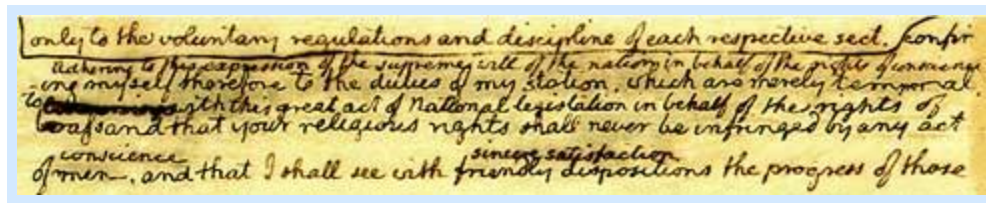 only to the voluntary regulations and discipline of each respective sect. Confin
adhering to this expression of the supreme will of the nation in behalf of the rights of conscience
-ing myself therefore to the duties of my station, which are merely temporal,
with this great act of National legislation in behalf of the rights of
and that your religious rights shall never be infringed by any act
conscience sincere satisfaction
of men, and that I shall see with friendly dispositions the progress of those